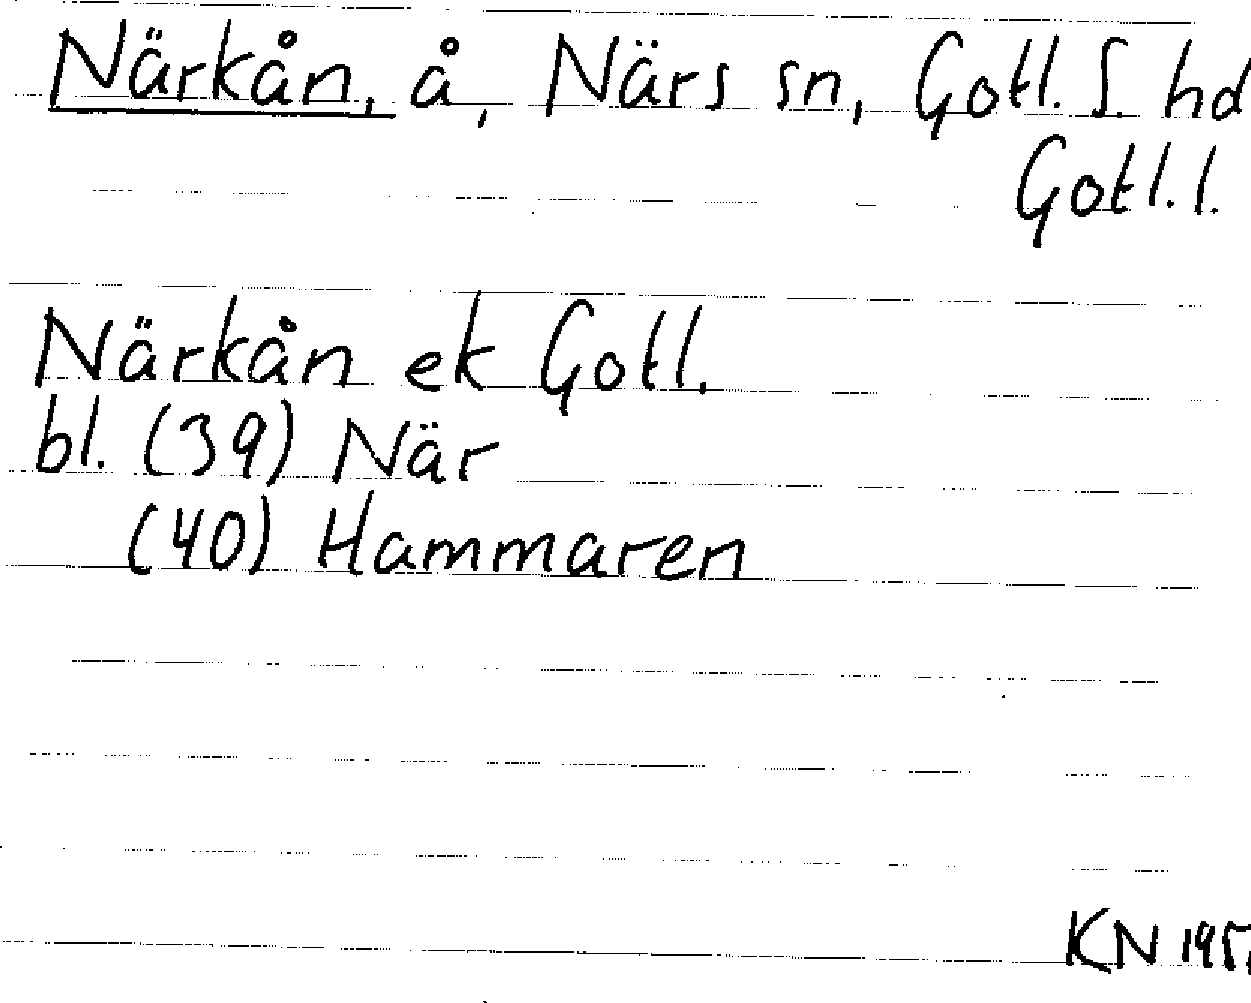 Närkån, å, Närs sn, Gotl. S. hd
Gotl. l.
Närkån ek Gotl.
bl. (39) När
(40) Hammaren
KN